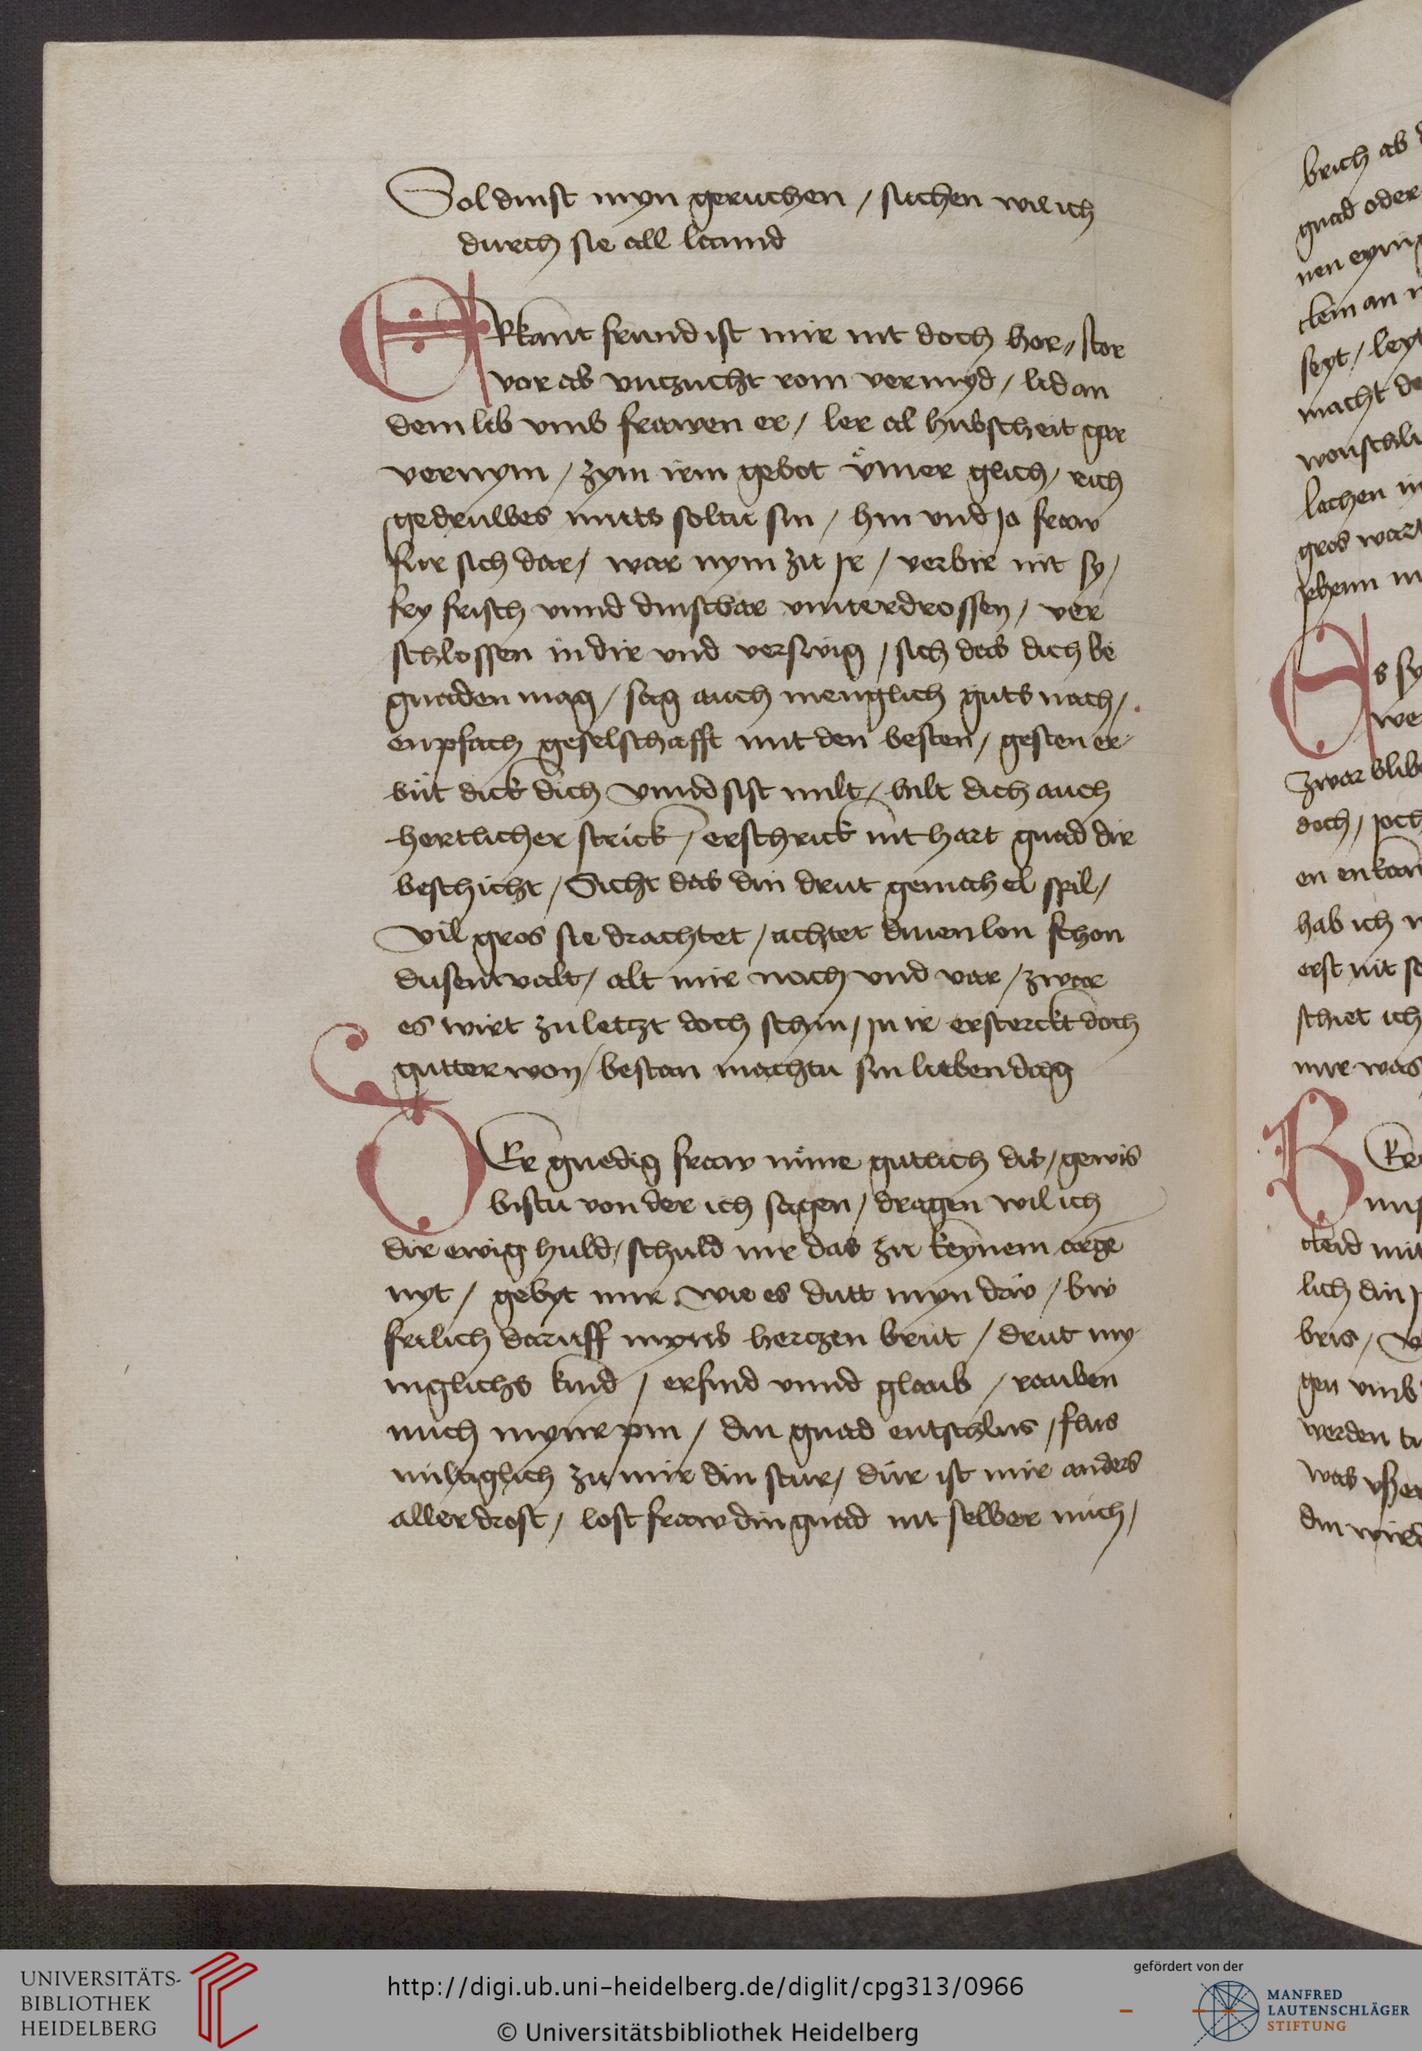 Sol dinst myn geruchen / suchen wil ich
durch sie all lannd
ERkant frund ist mir nit doch hor / stor
vor ab vnzucht rom vermyd / lid an
dem lib vmb frawen er / ler al hubscheit gar
vernym / zym irm gebot ymer glich / rich
gedrulbes mits soltu sin / hin vnd ja fraw
fur sich dar / war nym zu jr / verbir nit sy /
fry frisch vnnd dinstbar vnuerdrossen / ver
schlossen in dir vnd verswig / sich das dich be
gnaden mag / sag auch menglich guts nach /
enpfach geselschafft mit den besten / gesten er
büt dick dich vnnd sist milt / bilt dich auch
hertlicher strick / erschrick nit hart gnad dir
beschicht / Sicht das din drut gemahel spil /
Vil gros sie drachtet / achtet dinen lon schon
dusentvalt / alt mir noch vnd var / zwar
es wirt zuletzt doch schin / jn ir ersterckt doch
gutter won / bestan machtu sin lieben dag
DEr gnedig fraw nime gutlich dis / gewis
bistu von der ich sagen / dragen wil ich
dir ewig huld / schuld mir das zu keynem arge
nyt / gebyt mir wie es dutt myn drw / bw
frilich daruff myns hertzen brut / drut my
niglichs kind / erfind vnnd glaub / rauben
mich myner pin / din gnad entschlus / flus
miltiglich zu mir din stur / dur ist mir anders
aller drost / lost fraw din gnad nit selber mich /
brich ab
gnad oder
seyt /
macht de
lachen
gros wart
Es sy
we
zwar
doch /
hab ich
erst nit
schiet ich
mir was
BEr
lich din
gen vmb
werden
was
din wird
UNIVERSITÄTS-
BIBLIOTHEK
HEIDELBERG
http://digi.ub.uni-heidelberg.de/diglit/cpg313/0966
© Universitätsbibliothek Heidelberg
gefördert von der
MANFRED
LAUTENSCHLÄGER
STIFTUNG